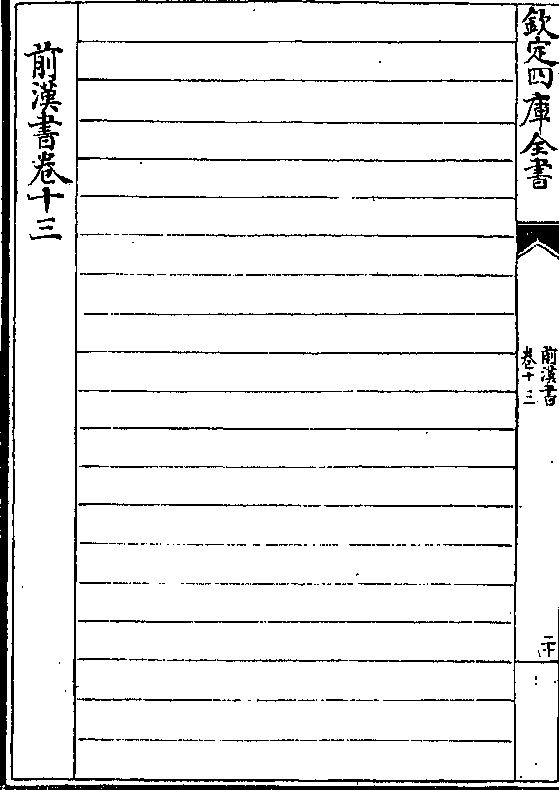 欽定四庫全書
前漢書
卷十三
二十
前漢書卷十三